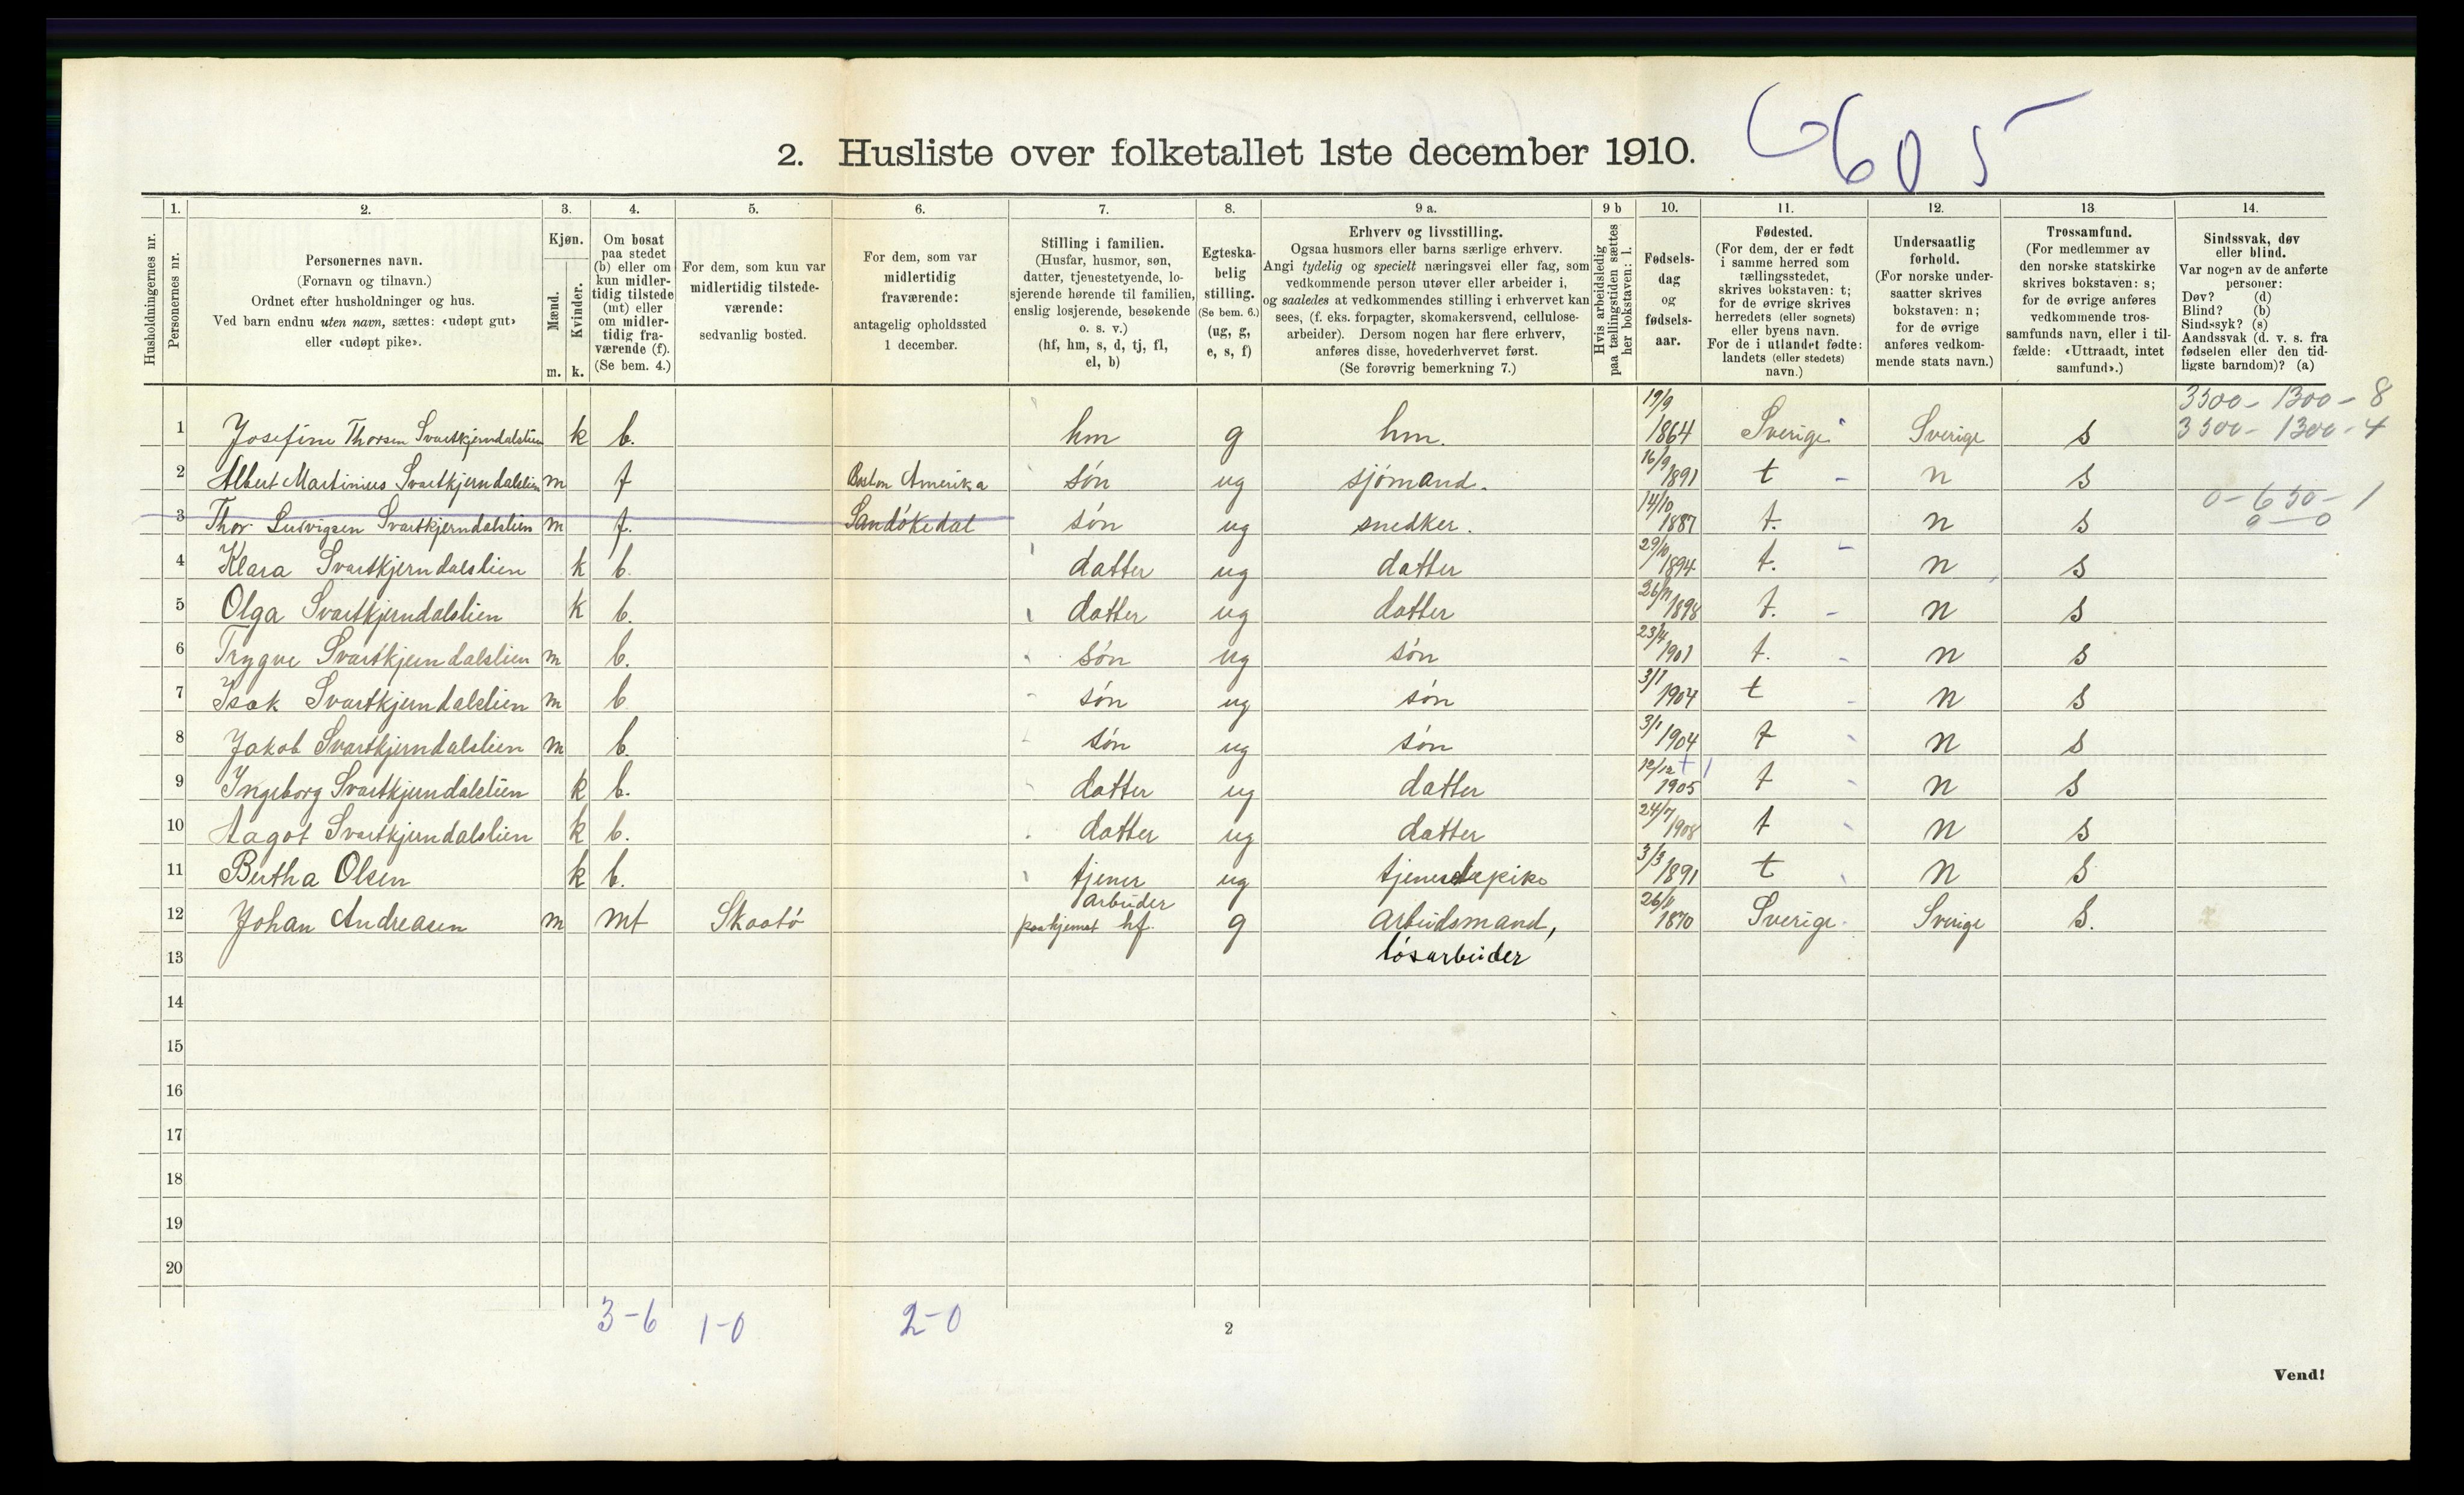 2. Husliste over folketallet 1ste december 1910.
6605
Husholdningernes nr.
1. Personernes nr.
2. Personernes navn. (Fornavn og tilnavn.) Ordnet efter husholdninger og hus. Ved barn endnu uten navn, sættes: «udøpt gut» eller «udøpt pike».
3. Kjøn. Mænd. m. Kvinder. k.
4. Om bosat paa stedet (b) eller om kun midlertidig tilstede (mt) eller om midlertidig fraværende (f). (Se bem. 4.)
5. For dem, som kun var midlertidig tilstedeværende: sedvanlig bosted.
6. For dem, som var midlertidig fraværende: antagelig opholdssted 1 december.
7. Stilling i familien. (Husfar, husmor, søn, datter, tjenestetyende, losjerende hørende til familien, enslig losjerende, besøkende o. s. v.) (hf, hm, s, d, tj, fl, el, b)
8. Egteskabelig stilling. (Se bem. 6.) (ug, g, e, s, f)
9 a. Erhverv og livsstilling. Ogsaa husmors eller barns særlige erhverv. Angi tydelig og specielt næringsvei eller fag, som vedkommende person utøver eller arbeider i, og saaledes at vedkommendes stilling i erhvervet kan sees, (f. eks. forpagter, skomakersvend, cellulosearbeider). Dersom nogen har flere erhverv, anføres disse, hovederhvervet først. (Se forøvrig bemerkning 7.)
9 b Hvis arbeidsledig paa tællingstiden sættes her bokstaven: l.
10. Fødselsdag og fødselsaar.
11. Fødested. (For dem, der er født i samme herred som tællingsstedet, skrives bokstaven: t; for de øvrige skrives herredets (eller sognets) eller byens navn. For de i utlandet fødte: landets (eller stedets) navn.)
12. Undersaatlig forhold. (For norske undersaatter skrives bokstaven: n; for de øvrige anføres vedkommende stats navn.)
13. Trossamfund. (For medlemmer av den norske statskirke skrives bokstaven: s; for de øvrige anføres vedkommende trossamfunds navn, eller i tilfælde: «Uttraadt, intet samfund».)
14. Sindssvak, døv eller blind. Var nogen av de anførte personer: Døv? (d) Blind? (b) Sindssyk? (s) Aandssvak (d. v. s. fra fødselen eller den tidligste barndom)? (a)
3500 - 1300 - 8
1 Josefine Thorsen Svartkjerndalslien k b. hm g hm. 19/9 1864 Sverige Sverige s 3500 - 1300 - 4
2 Albert Martinius Svartkjerndalslien m f Boston Amerika søn ug sjømand. 16/9 1891 t n s
3 Thor Ludvigsen Svartkjerndalslien m f. Sandökedal søn ug snedker. 14/10 1887 t. n s 0 - 650 - 1
0 - 0
4 Klara Svartkjerndalslien k b. datter ug datter 29/10 1894 t. n s
5 Olga Svartkjerndalslien k b. datter ug datter 26/11 1898 t. n s
6 Trygve Svartkjerndalslien m b. søn ug søn 23/4 1901 t. n s
7 Isak Svartkjerndalslien m b søn ug søn 3/1 1904 t n s
8 Jakob Svartkjerndalslien m b. søn ug søn 3/1 1904 t n s
9 Ingeborg Svartkjerndalslien k b. datter ug datter 12/12 1905 t n s
10 Aagot Svartkjerndalslien k b. datter ug datter 24/7 1908 t n s
11 Bertha Olsen k b. tjener ug tjenestepike 3/3 1891 t n s
12 Johan Andreasen m mt Skaatö arbeider hf. g arbeidsmand, 1870 Sverige Sverige s.
13 løsarbeider
14
15
16
17
18
19
20
3-6 1-0 2-0
2
Vend!